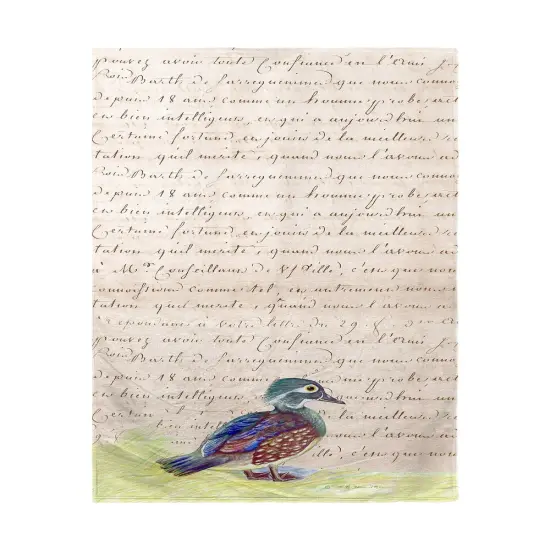 pouvez avoir toute Confiance en l'ami
Barth de Sarreguemines que nous conno
depuis 18 ans comme un homme probe, act
en bien intelligens, en qui a aujourd'hui un
Certaine fortune, en jouis de la meilleure
tation quil merite, quand nous l'avons
Barth de Sarreguemines que nous conno
depuis 18 ans comme un homme probe, act
en bien intelligens, en qui a aujourd'hui un
Certaine fortune en jouis de la meilleure
tation quil merite, quand nous l'avons a
à Mr Conseillans de V/Ville, c'en que nou
connoissions comme tel, en autrement nous
tation quil merite, quand nous l'avons a
à votre lettre du 29
pouvez avoir toute Confiance en l'ami
Barth de Sarreguemines que nous conno
depuis 18 ans comme probe, act
en bien intelligens a aujourd'hui un
Certaine de la meilleure
tation quil nous l'avons